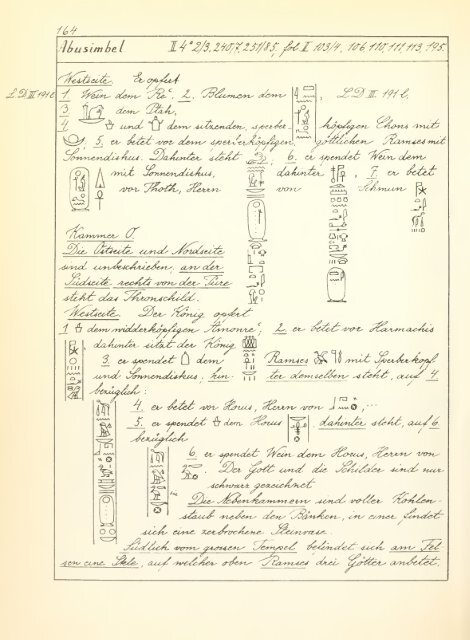 164
Abusimbel II 4° 2/3, 240/7, 251/85, fol. I 103/4, 106, 110, 111, 113, 195.
Westseite. Er opfert
L.D. III 191 1. Wein dem Re; 2. Blumen dem , L.D. III. 191 l,
3. dem Ptah,
4. und dem sitzenden, sperber- köpfigen Chons mit
5. er betet vor dem sperberköpfigen göttlichen Ramses mit
Sonnendiskus. Dahinter steht ; 6. er spendet Wein dem
mit Sonnendiskus, dahinter , 7. er betet
vor Thoth, Herrn von Schmun
Kammer O.
Die Ostseite und Nordseite
sind unbeschrieben, an der
Südseite rechts von der Türe
steht das Thronschild.
Westseite. Der König opfert
1 dem widderköpfigen Amonre; 2. er betet vor Harmachis
dahinter sitzt der König
3. er spendet dem Ramses mit Sperberkopf
und Sonnendiskus, hinter demselben steht, auf 4.
bezüglich:
4. er betet vor Horus, Herrn von
5. er spendet dem Horus dahinter steht, auf 6.
bezüglich
6. er spendet Wein dem Horus, Herrn von
Der Gott und die Schilder sind nur
schwarz gezeichnet
Die Nebenkammern sind voller Kohlen-
staub neben den Bänken, in einer findet
sich eine zerbrochene Steinvase.
Südlich vom grossen Tempel befindet sich am Fel-
sen eine Stele, auf welcher oben Ramses drei Götter anbetet.